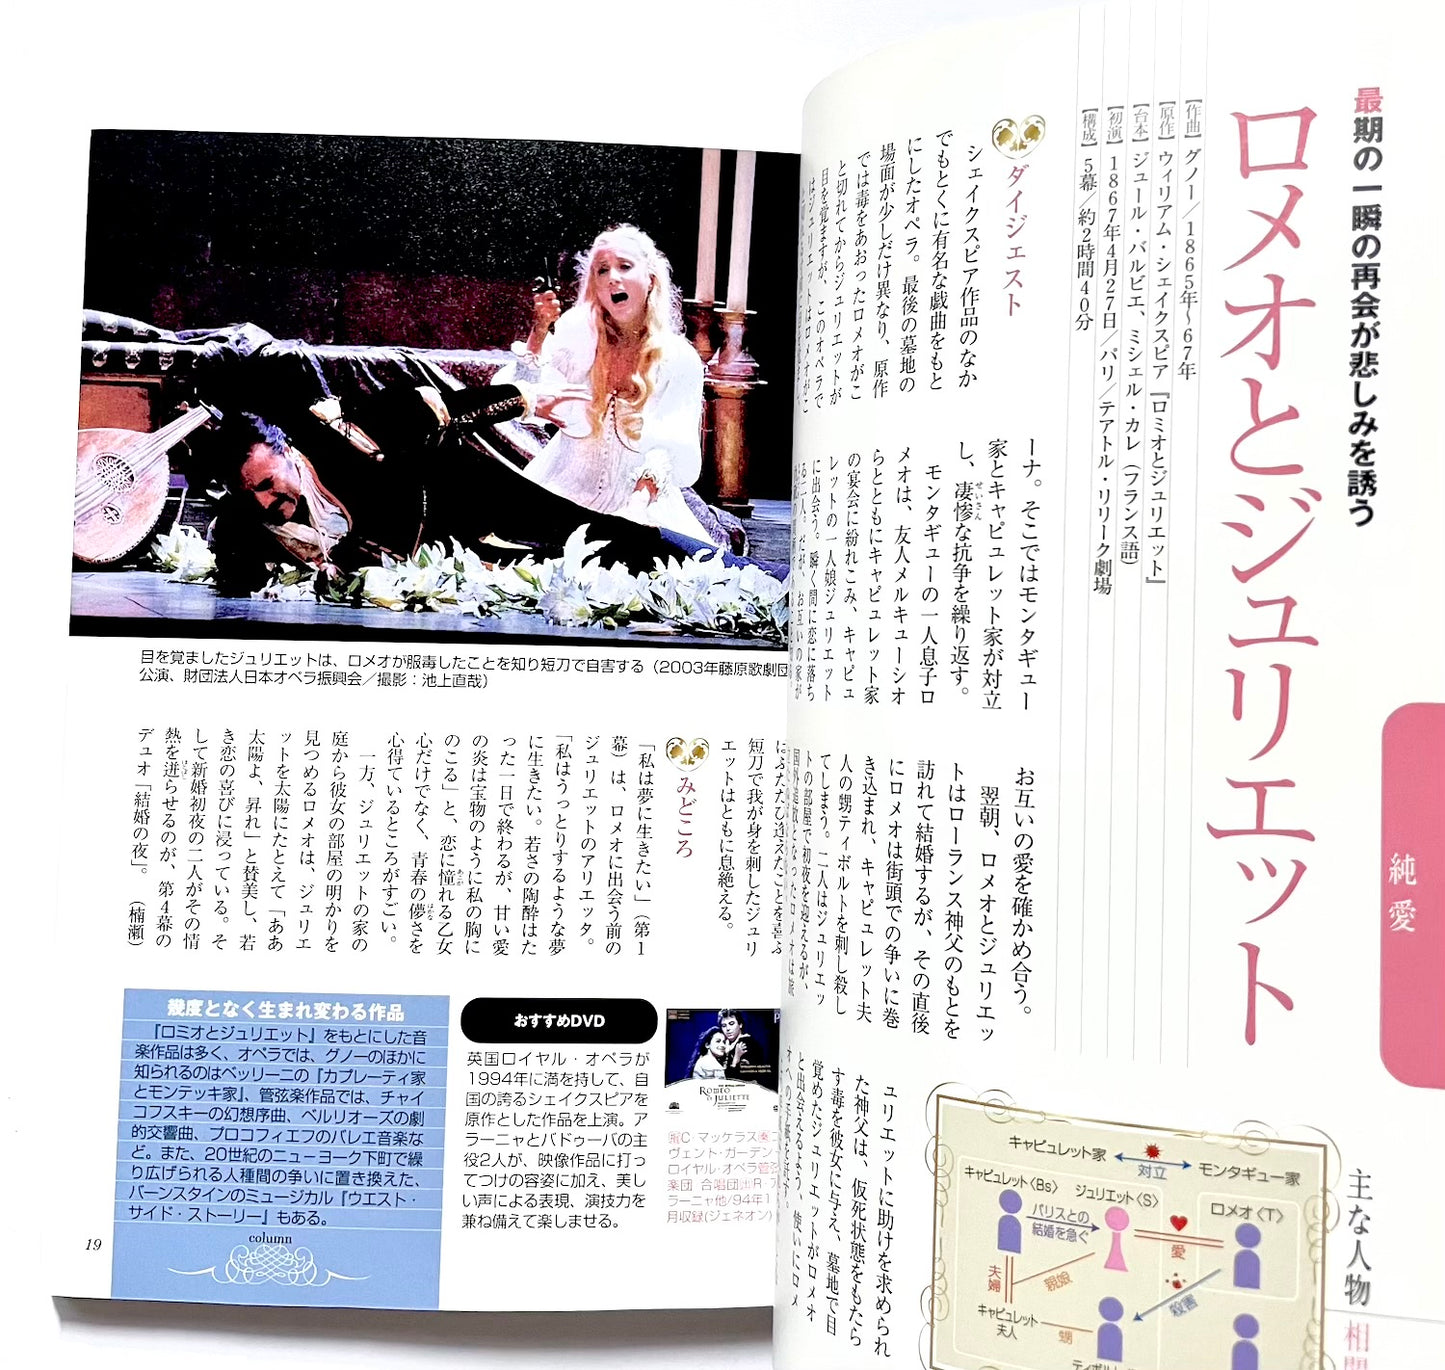 最期の一瞬の再会が悲しみを誘う
ロメオとジュリエット
【作曲】グノー／1865年〜67年
【原作】ウィリアム・シェイクスピア『ロミオとジュリエット』
【台本】ジュール・バルビエ、ミシェル・カレ（フランス語）
【初演】1867年4月27日／パリ／テアトル・リリーク劇場
【構成】5幕／約2時間40分
ダイジェスト
シェイクスピア作品のなか
でもとくに有名な戯曲をもと
にしたオペラ。最後の墓地の
場面が少しだけ異なり、原作
では毒をあおったロメオがこ
と切れてからジュリエットが
目を覚ますが、このオペラで
はジュリエットはロメオがこ
ーナ。そこではモンタギュー
家とキャピュレット家が対立
し、凄惨な抗争を繰り返す。
せいさん
モンタギューの一人息子ロ
メオは、友人メルキューシオ
らとともにキャピュレット家
の宴会に紛れこみ、キャピュ
レットの一人娘ジュリエット
に出会う。瞬く間に恋に落ち
る二人。だが、お互いの家が
お互いの愛を確かめ合う。
翌朝、ロメオとジュリエッ
トはローランス神父のもとを
訪れて結婚するが、その直後
にロメオは街頭での争いに巻
き込まれ、キャピュレット夫
人の甥ティボルトを刺し殺し
てしまう。二人はジュリエッ
トの部屋で初夜を迎えるが、
国外追放となったロメオは旅
ュリエットに助けを求められ
た神父は、仮死状態をもたら
す毒を彼女に与え、墓地で目
覚めたジュリエットがロメオ
と出会えるよう、使いにロメ
オへの手紙を託す。
純愛
主な人物
キャピュレット家
対立
モンタギュー家
キャピュレット〈Bs〉
ジュリエット〈S〉
ロメオ〈T〉
パリスとの
結婚を急ぐ
愛
夫婦
親娘
殺害
キャピュレット
夫人
甥
目を覚ましたジュリエットは、ロメオが服毒したことを知り短刀で自害する（2003年藤原歌劇団
公演、財団法人日本オペラ振興会／撮影：池上直哉）
にふたたび逢えたことを喜ぶ
短刀で我が身を刺したジュリ
エットはともに息絶える。
みどころ
「私は夢に生きたい」（第1
幕）は、ロメオに出会う前の
ジュリエットのアリエッタ。
「私はうっとりするような夢
に生きたい。若さの陶酔はた
った一日で終わるが、甘い愛
の炎は宝物のように私の胸に
のこる」と、恋に憧れる乙女
あこが
心だけでなく、青春の儚さを
はかな
心得ているところがすごい。
一方、ジュリエットの家の
庭から彼女の部屋の明かりを
見つめるロメオは、ジュリエ
ットを太陽にたとえて「ああ
太陽よ、昇れ」と賛美し、若
き恋の喜びに浸っている。そ
して新婚初夜の二人がその情
熱を迸らせるのが、第4幕の
ほとばし
デュオ「結婚の夜」。
（楠瀬）
幾度となく生まれ変わる作品
『ロミオとジュリエット』をもとにした音
楽作品は多く、オペラでは、グノーのほかに
知られるのはベッリーニの『カプレーティ家
とモンテッキ家』、管弦楽作品では、チャイ
コフスキーの幻想序曲、ベルリオーズの劇
的交響曲、プロコフィエフのバレエ音楽な
ど。また、20世紀のニューヨーク下町で繰
り広げられる人種間の争いに置き換えた、
バーンスタインのミュージカル『ウエスト・
サイド・ストーリー』もある。
column
おすすめDVD
英国ロイヤル・オペラが
1994年に満を持して、自
国の誇るシェイクスピアを
原作とした作品を上演。ア
ラーニャとバドゥーバの主
役2人が、映像作品に打っ
てつけの容姿に加え、美し
い声による表現、演技力を
兼ね備えて楽しませる。
ROMÉO
ET JULIETTE
指C・マッケラス
ヴェント・ガーデン・
ロイヤル・オペラ管弦
楽団 合唱団
ラーニャ他/94年1
月収録(ジェネオン)
19